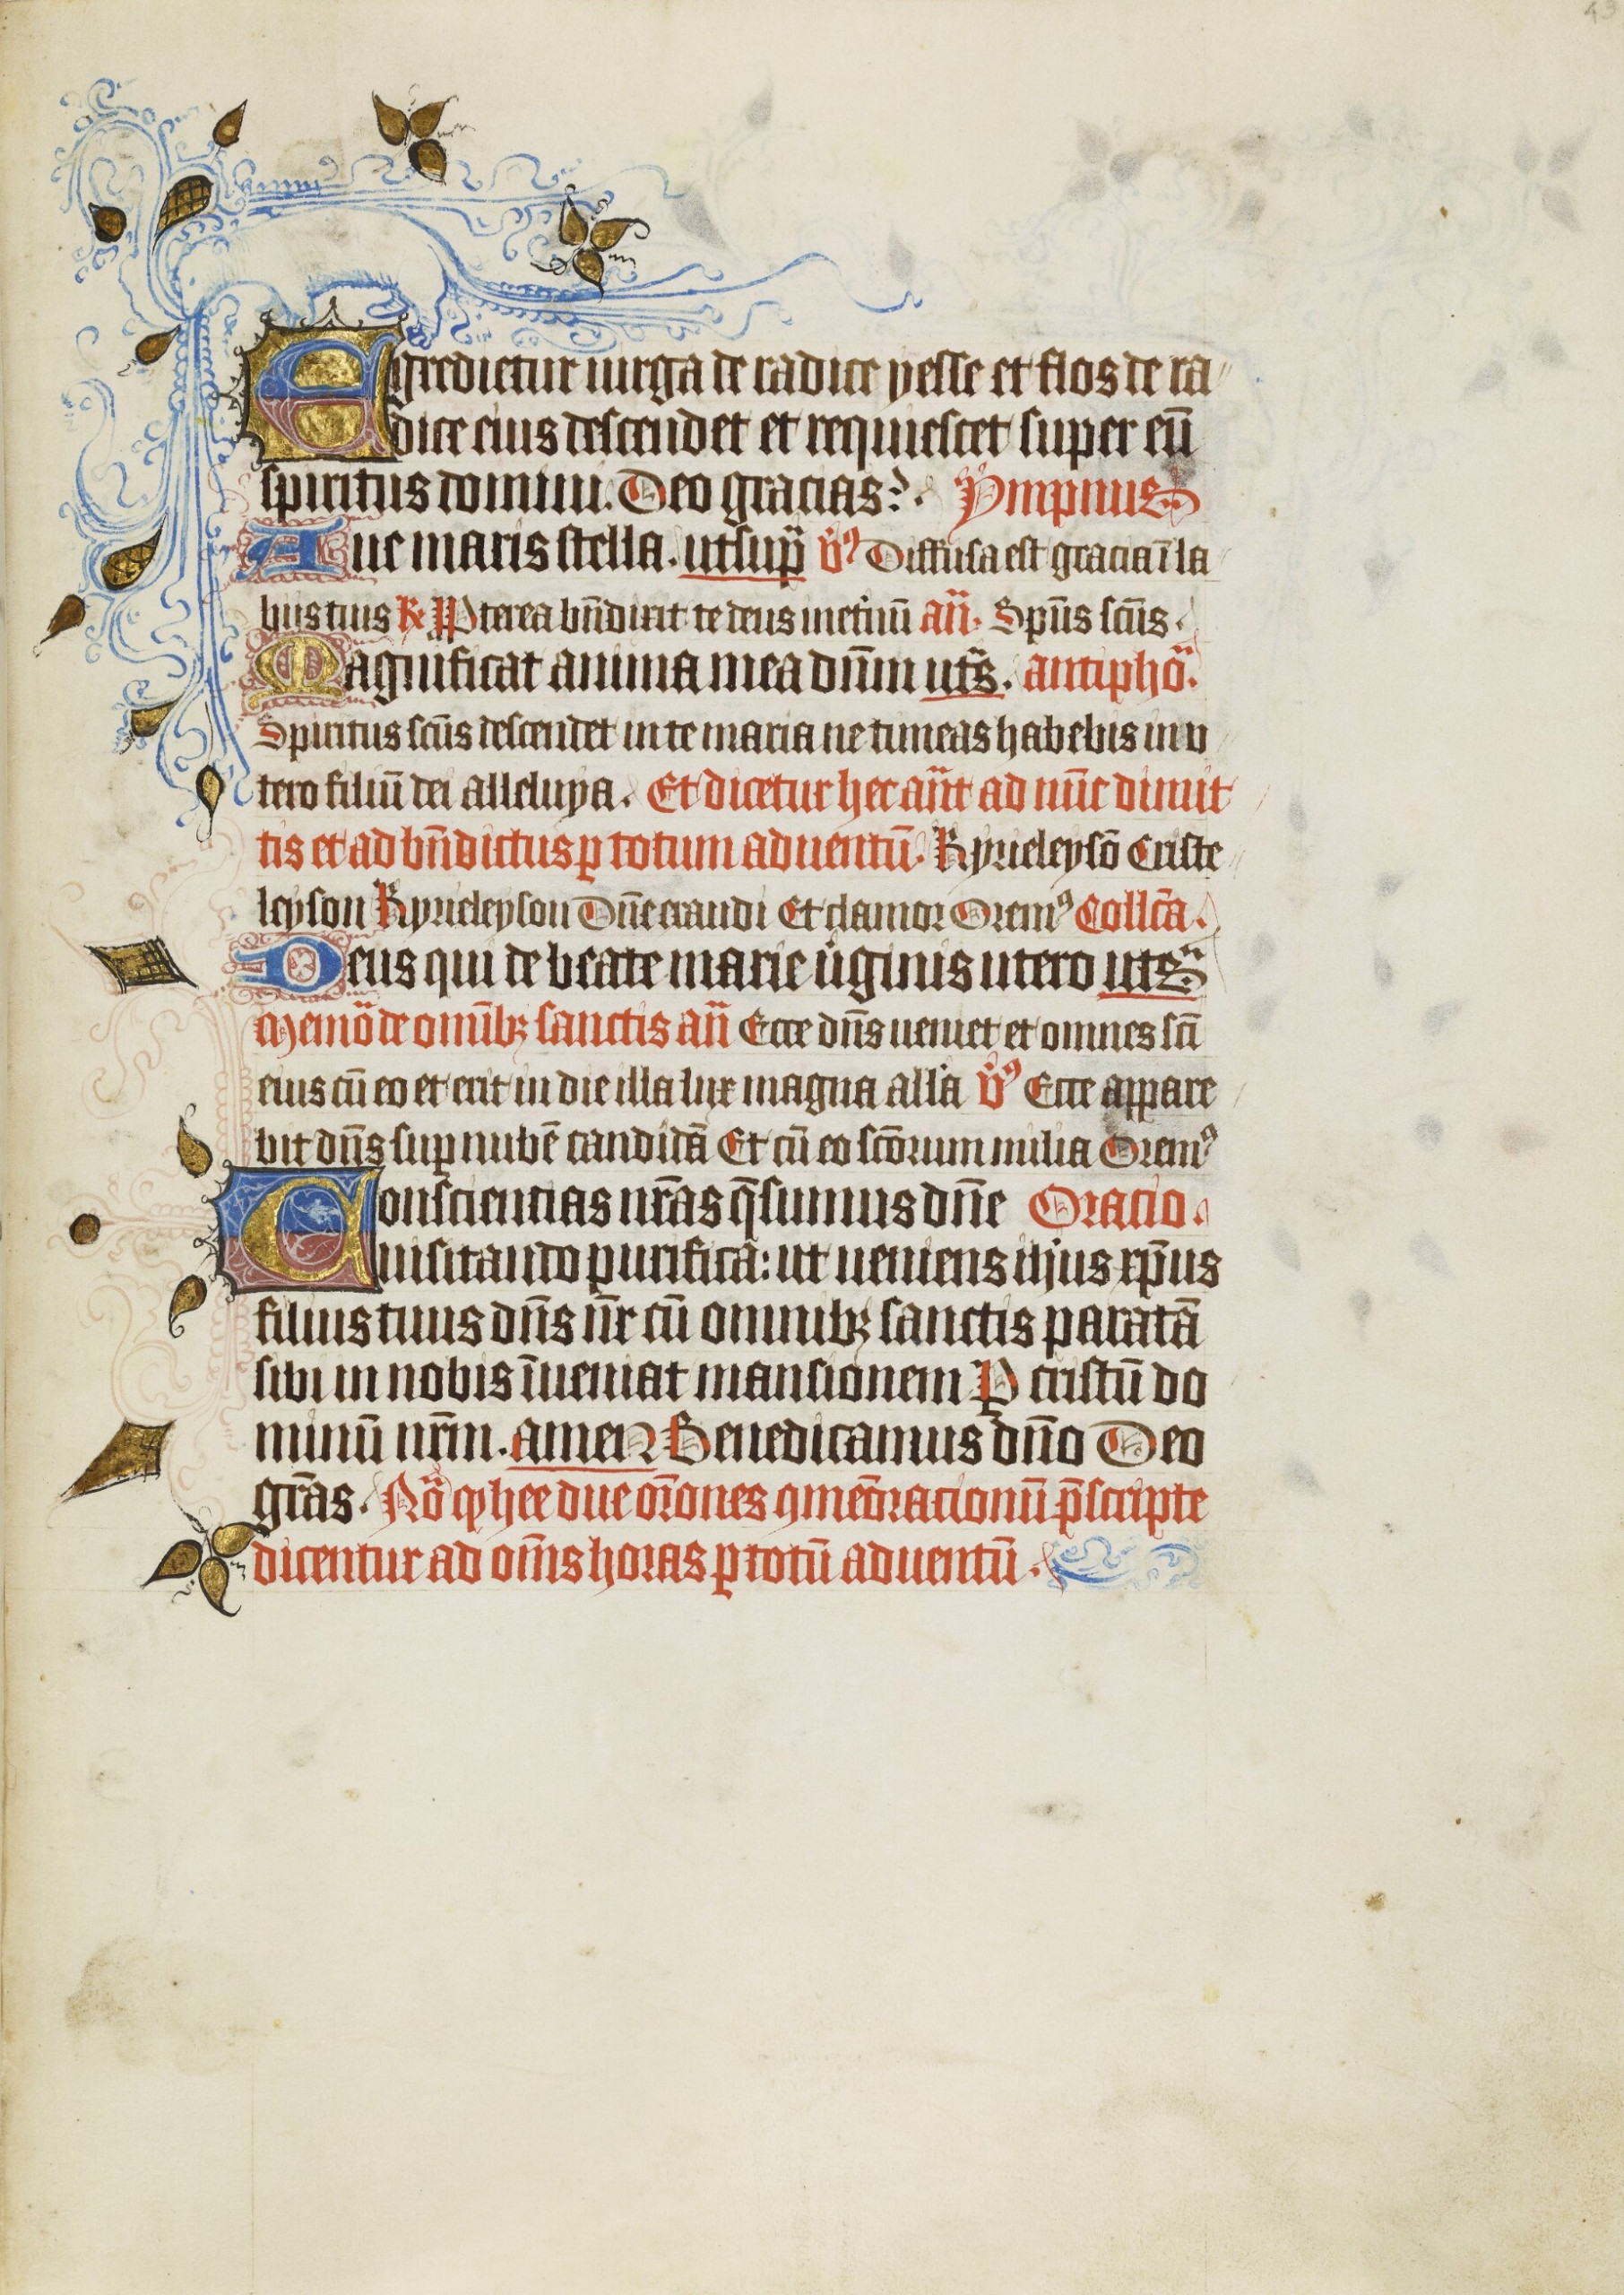 43
Egredietur uirga de radice yesse et flos de ra
dice eius descendet et requiescet super eū
spiritus domini. Deo gracias. Ympnus
Aue maris stella. ut sup̄ v̄⁹ Diffusa est gracia ī la
bijs tuis ꝶ Ppterea bn̄dixit te deus in et̄nū an̄. Sp̄us sc̄us.
Magnificat anima mea dn̄m ut s̄. antipho̅.
Spiritus sc̄us descendet in te maria ne timeas habebis in v
tero filiū dei alleluya. Et dicetur hec an̄t ad nūc dimit
tis et ad bn̄dictus ꝑ totum aduentū. Kyrieleysō Criste
leyson Kyrieleyson Dn̄e exaudi Et clamor Orem⁹ Collc̄a.
Deus qui de beate marie v̇ginis utero ut s̄
Memō de omībꝫ sanctis an̄ Ecce dn̄s ueniet et omnes sc̄i
eius cū eo et erit in die illa lux magna all̄a v̄⁹ Ecce appare
bit dn̄s suꝑ nubē candidā Et cū eo sc̄orum milia Orem⁹
Conscientias nr̄as q̄sumus dn̄e Oracio.
uisitando purifica: ut ueniens ihus xp̄us
filius tuus dn̄s nr̄ cū omnibꝫ sanctis paratā
sibi in nobis īueniat mansionem P cristū do
minū nr̄m. amen Benedicamus dn̄o Deo
gr̄as. No̅ ꝙ hee due or̄ones ꝯmēoracionū p̄scripte
dicentur ad om̄s horas ꝑ totū aduentū.